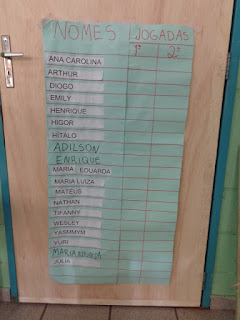 NOMES JOGADAS
1ª 2ª
ANA CAROLINA
ARTHUR
DIOGO
EMILY
HENRIQUE
HIGOR
HÍTALO
ADILSON
ENRIQUE
MARIA EDUARDA
MARIA LUIZA
MATEUS
NATHAN
TIFANNY
WESLEY
YASMMYM
YURI
MARIA
JÚLIA